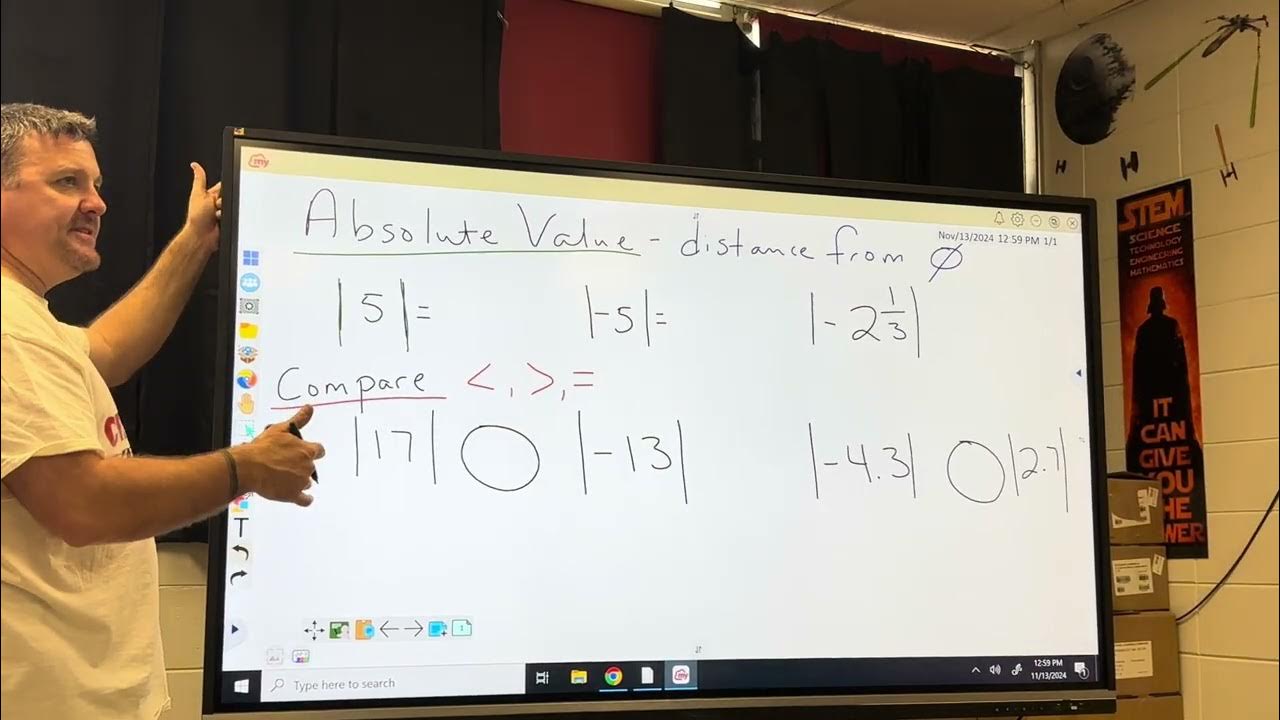 my
Absolute Value - distance from ∅
Nov/13/2024 12:59 PM 1/1
|5|= |-5|= |-2 1/3|
Compare <, >, =
|17| ◯ |-13| |-4.3| ◯ |2.7|
T
1
Type here to search
my
12:59 PM
11/13/2024
1
STEM
SCIENCE
TECHNOLOGY
ENGINEERING
MATHEMATICS
IT
CAN
GIVE
YOU
THE
POWER